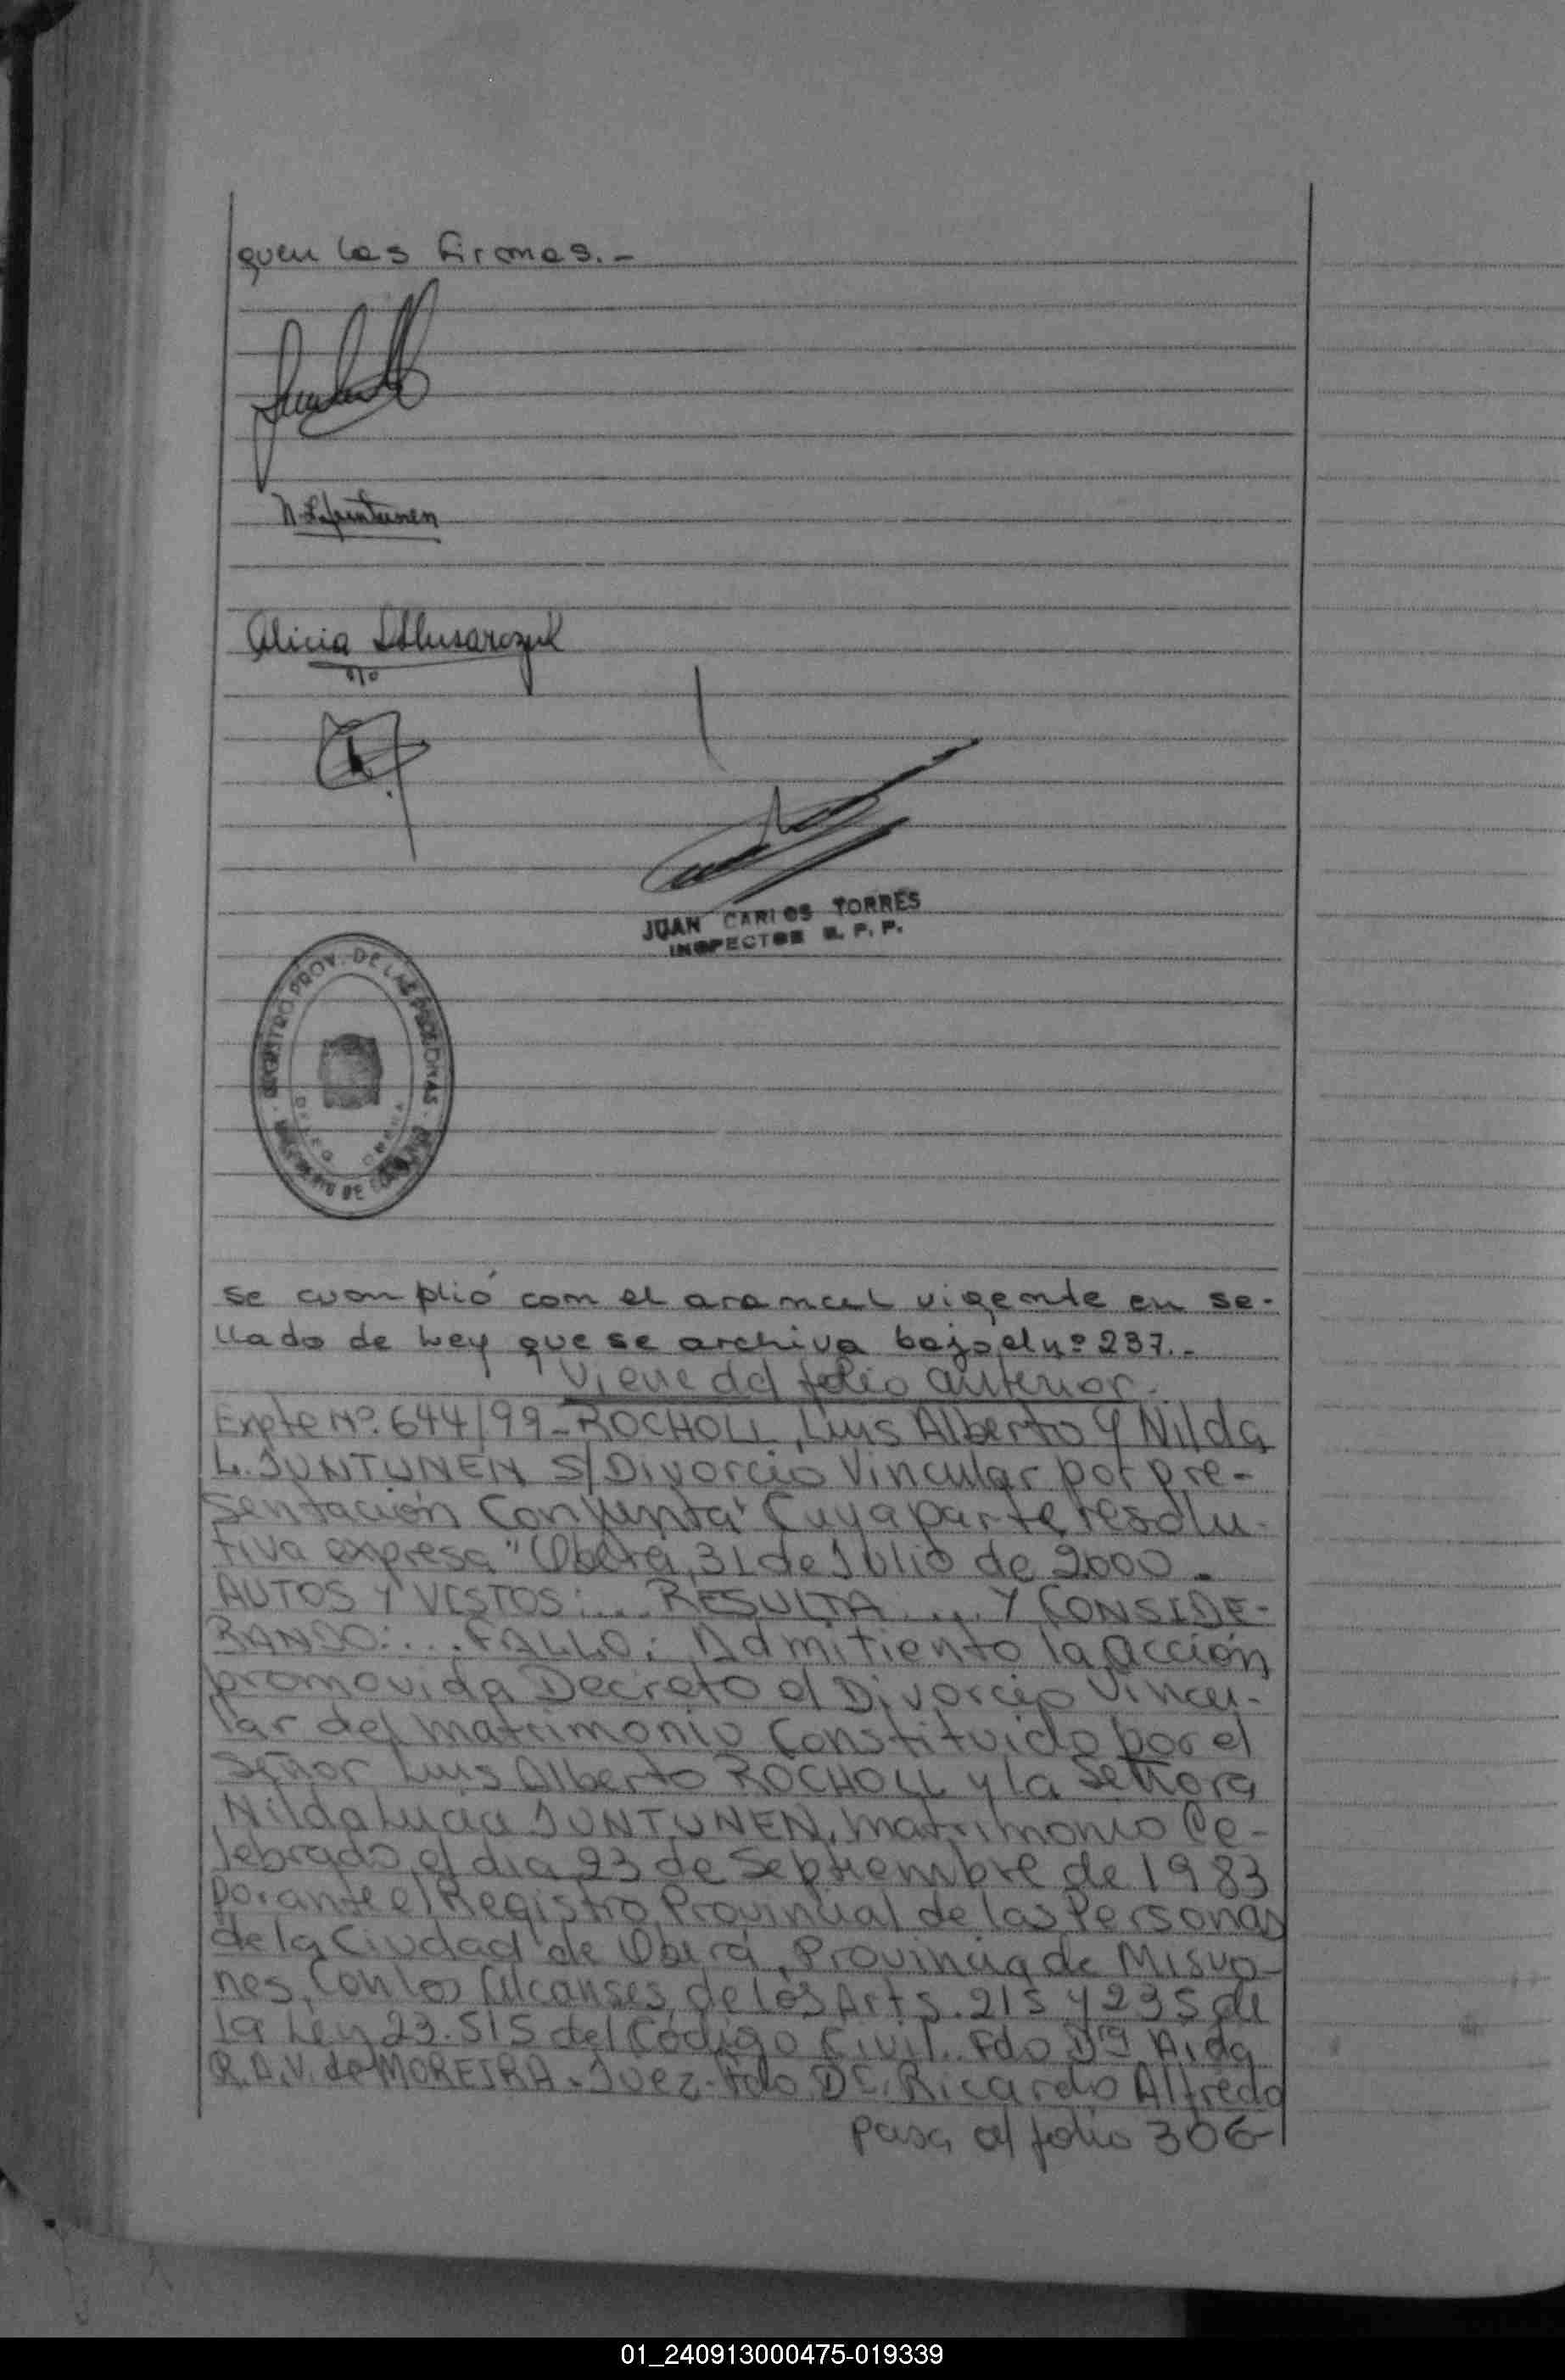 quen las firmas.-
N. L. Juntunen
Alicia Slusarczuk
JUAN CARLOS TORRES
INSPECTOR R. P. P.
REGISTRO PROV. DE LAS PERSONAS
DELEG. OBERA
se cumplió con el arancel vigente en se-
llado de Ley que se archiva bajo el nº 237.-
Viene del folio anterior.
Expte Nº. 644/99 - ROCHOLL, Luis Alberto y Nilda
L. JUNTUNEN S/Divorcio Vincular por pre-
sentación Conjunta" Cuya parte resolu-
tiva expresa "Oberá, 31 de Julio de 2000.
AUTOS Y VISTOS:... RESULTA.... Y CONSIDE-
RANDO:... FALLO: Admitiento la acción
promovida Decreto el Divorcio Vincu-
lar del matrimonio Constituido por el
Señor Luis Alberto ROCHOLL y la Señora
Nilda Lucia JUNTUNEN, matrimonio Ce-
lebrado el dia 23 de Septiembre de 1983
por ante el Registro Provincial de las Personas
de la Ciudad de Oberá, Provincia de Misio-
nes, Con los Alcanses de los Arts. 215 y 235 de
la Ley 23.515 del Código Civil.. Fdo Drª Aida
R.A.V. de MOREIRA. Juez - Fdo Dr. Ricardo Alfredo
pasa al folio 306
01_240913000475-019339